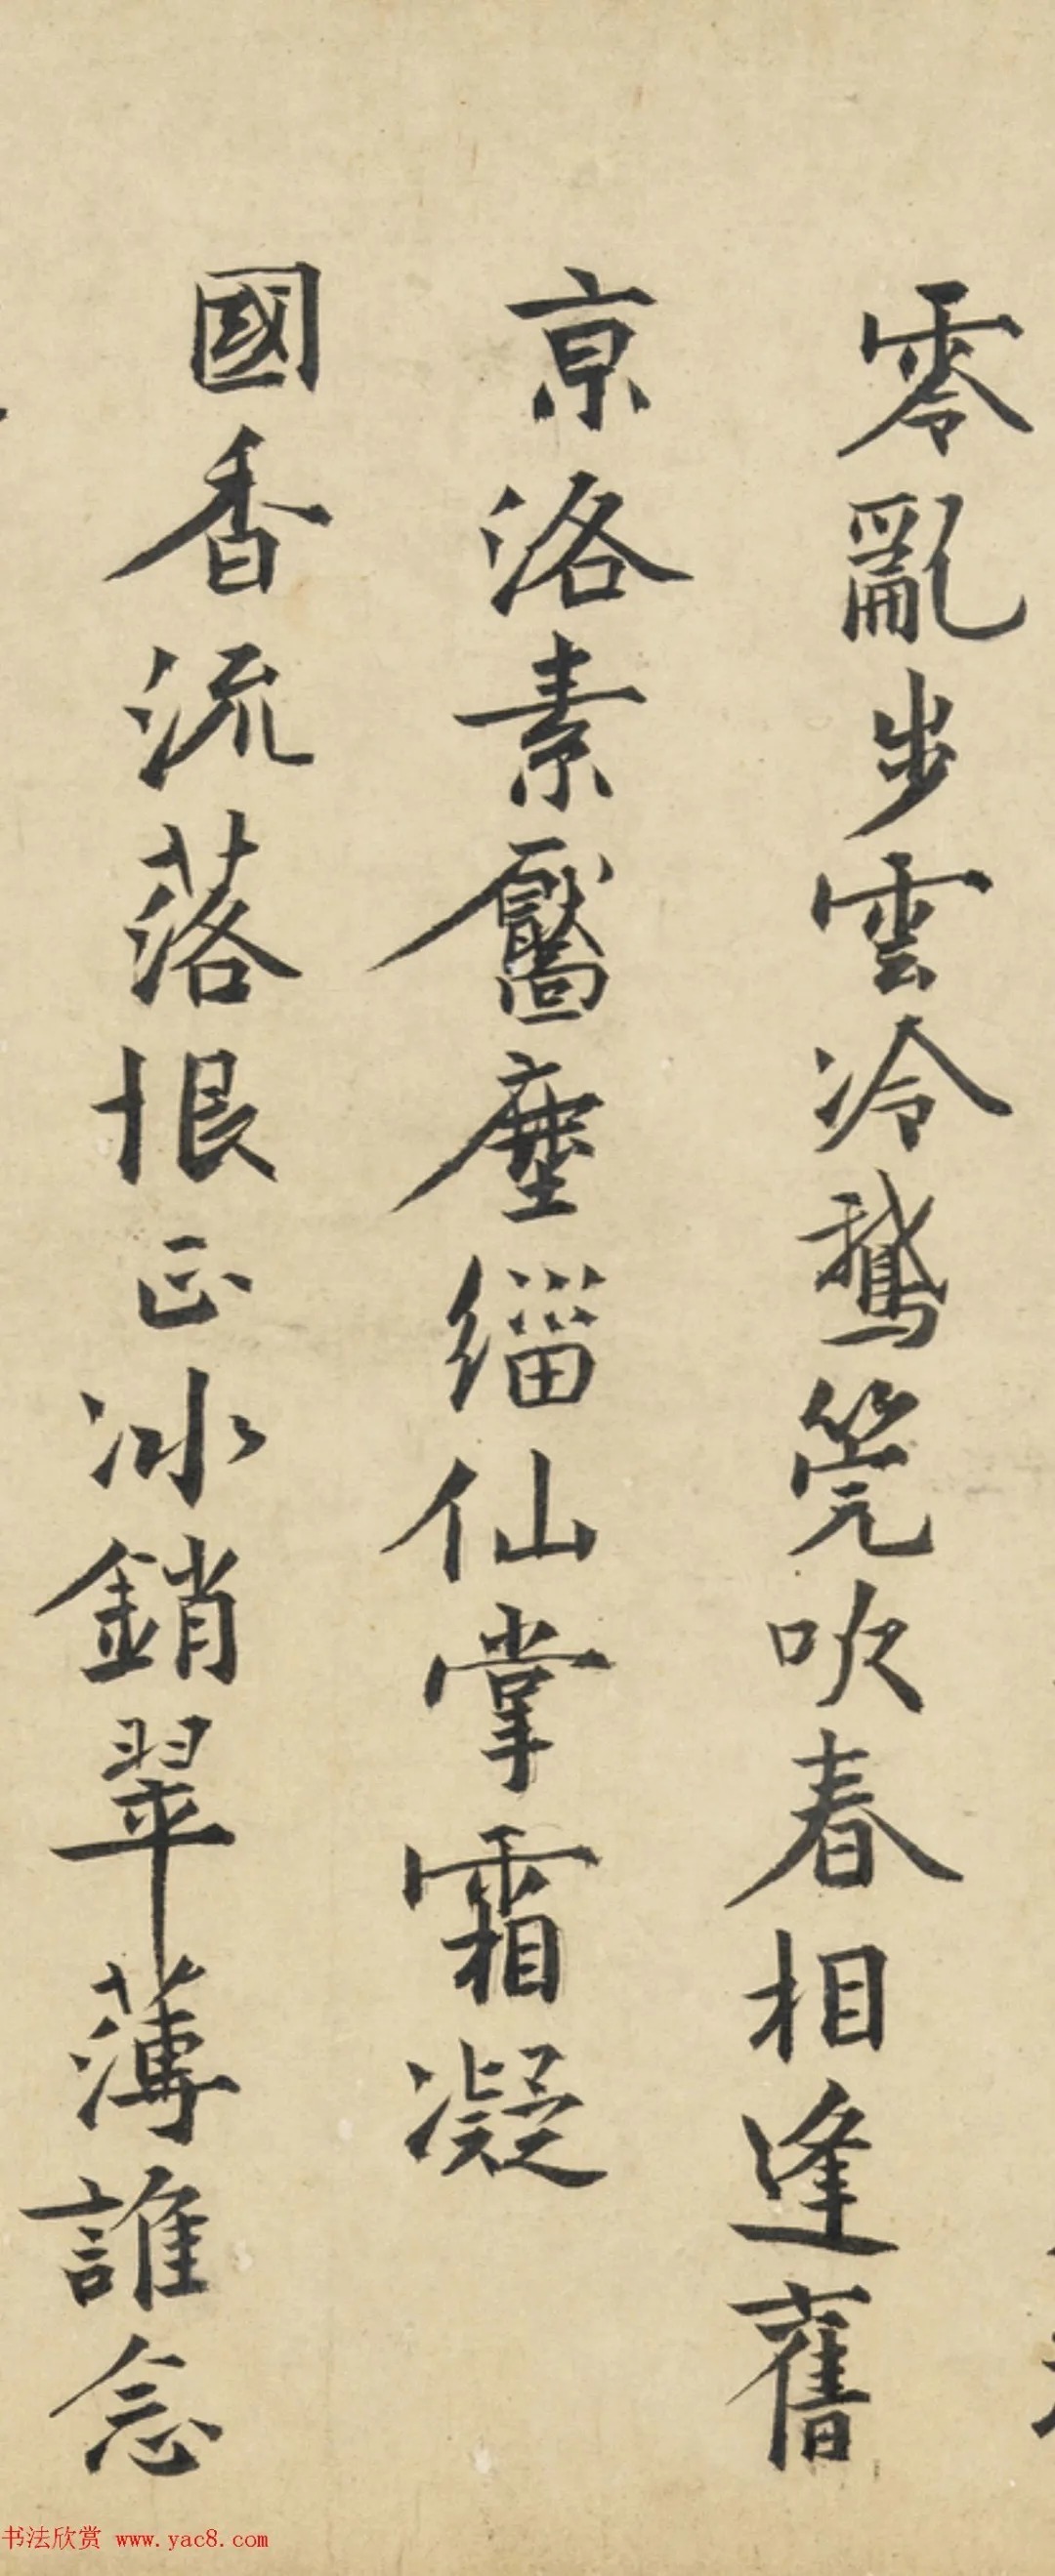 零亂步雲冷鵝筦吹春相逢舊
京洛素靨塵緇仙掌霜凝
國香流落恨正冰銷翠薄誰念
书法欣赏 www.yac8.com